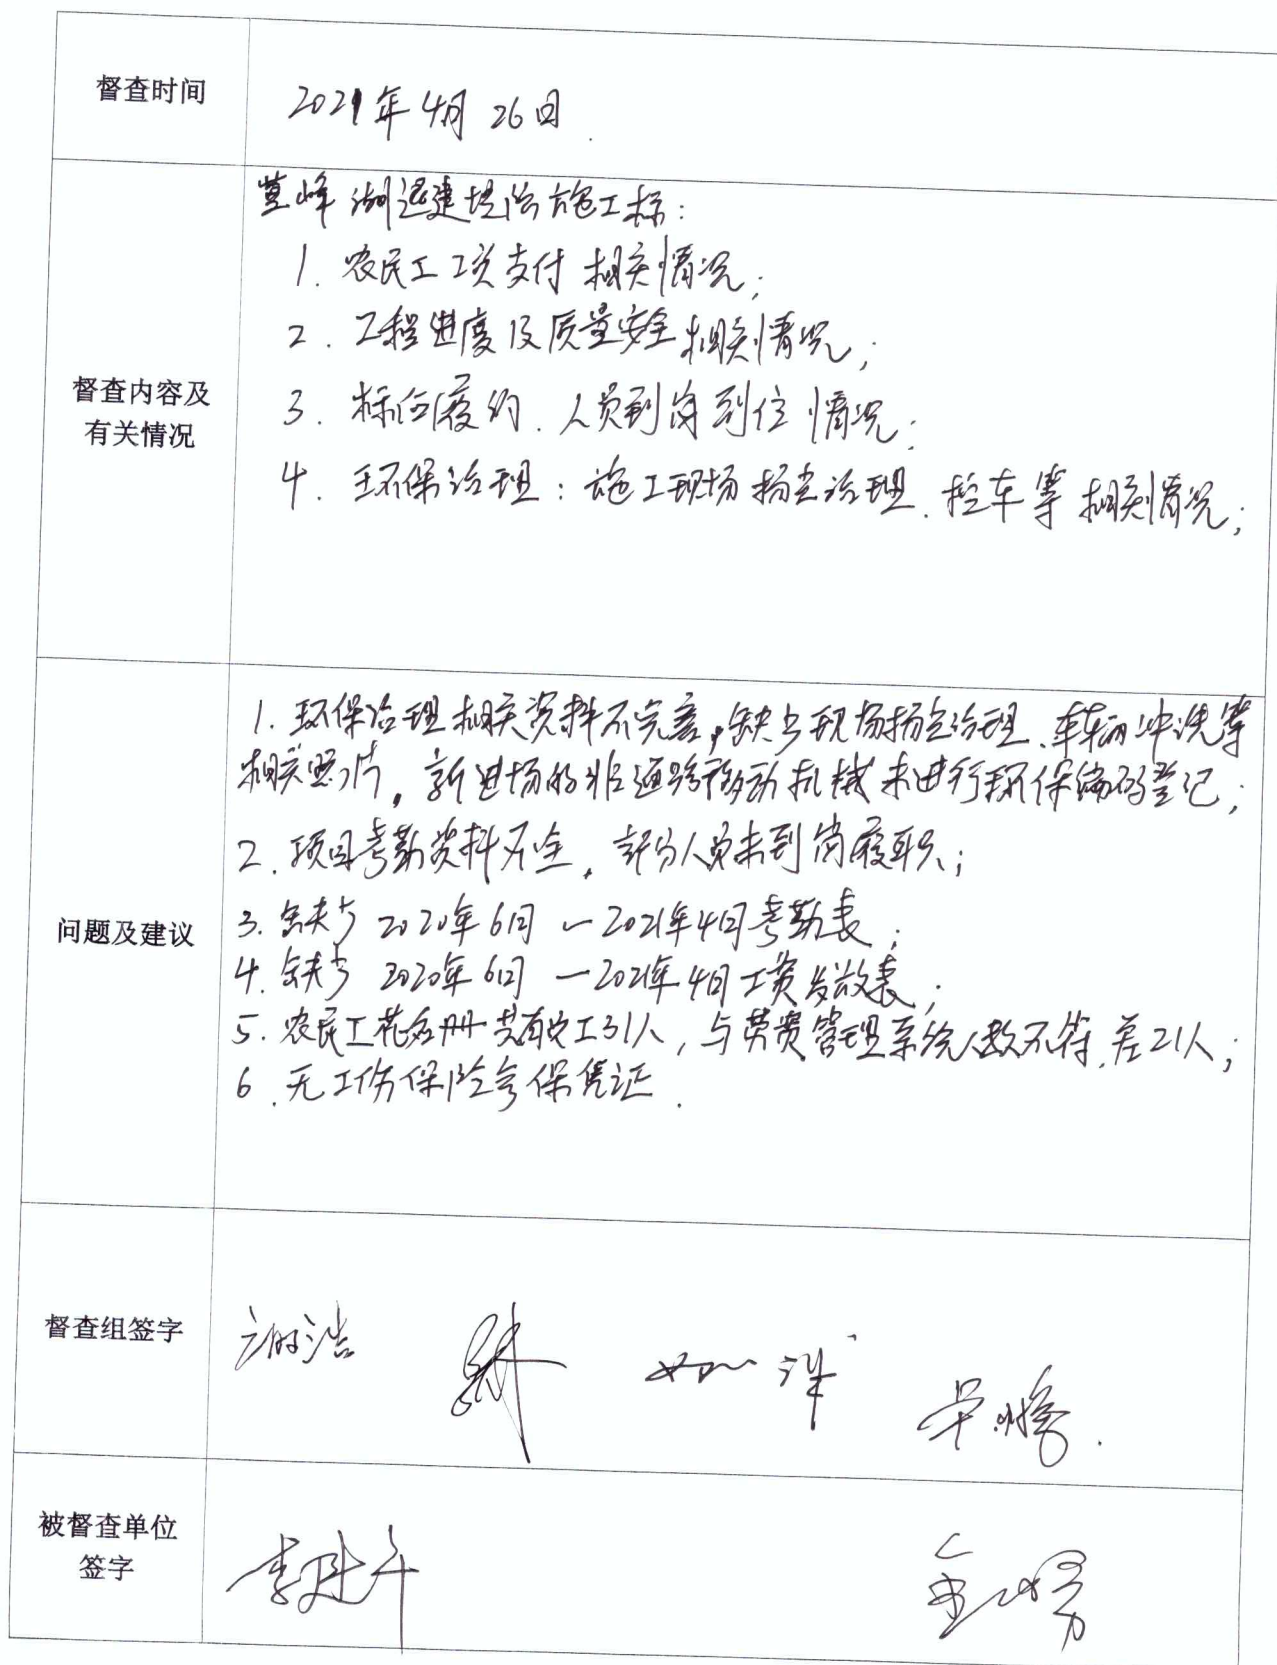 督查时间
2021年4月26日
督查内容及
有关情况
湖退建堤防施工标:
1. 农民工工资支付相关情况;
2. 工程进度及质量安全相关情况;
3. 标后履约、人员到岗到位情况;
4. 环保治理:施工现场扬尘治理、控车等相关情况;
问题及建议
1. 环保治理相关资料不完善,缺少现场扬尘治理、车辆冲洗等
相关照片,新进场的非道路移动机械未进行环保编码登记;
2. 项目考勤资料不全,部分人员未到岗履职;
3. 缺少2020年6月—2021年4月考勤表;
4. 缺少2020年6月—2021年4月工资发放表;
5. 农民工花名册共有民工31人,与劳资管理系统人数不符,差21人;
6. 无工伤保险参保凭证.
督查组签字
被督查单位
签字